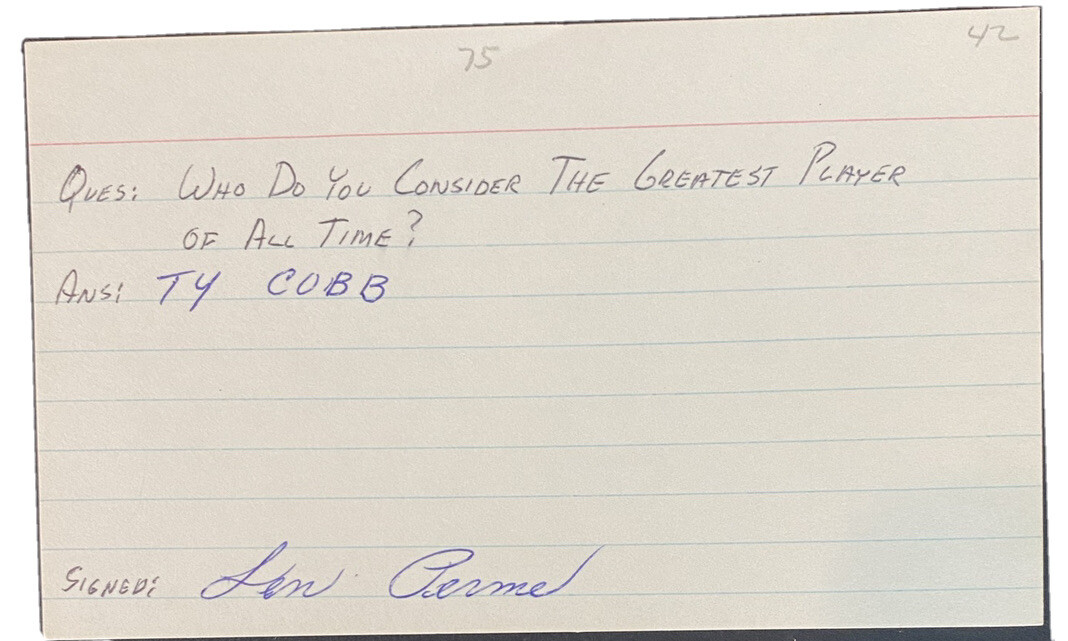 75 42
Ques: Who Do You Consider The Greatest Player
of All Time?
Ans: TY COBB
Signed: Len Perme